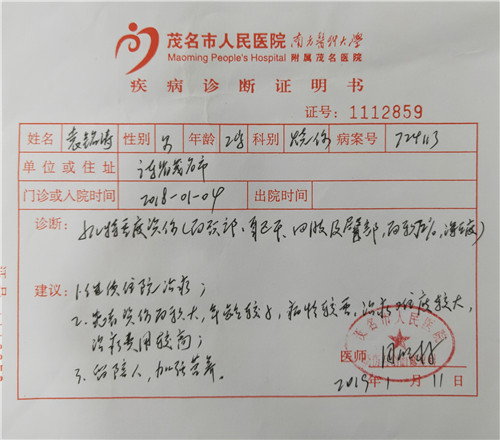 茂名市人民医院 南方医科大学
Maoming People's Hospital 附属茂名医院
疾病诊断证明书
证号：1112859
姓名 性别 年龄 2岁 科别 烧伤 病案号
单位或住址 茂名市
门诊或入院时间 2018-01-04 出院时间
诊断： 特重度烫伤（ 四肢及臀部，
建议：1.继续住院治疗；
2.患者烫伤面积较大，年龄较小，病情较重，治疗难度较大，
治疗费用较高；
3.留陪人，加强营养。
茂名市人民医院
医师：
2019年1月11日